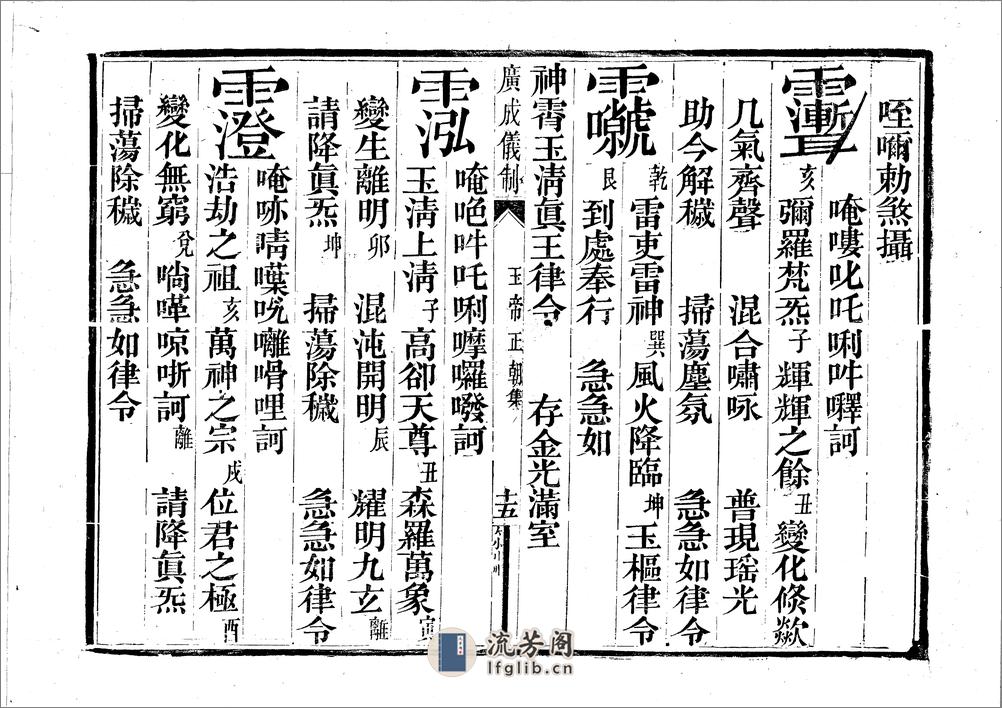 咥嚩勅煞攝
唵嘍叱吒唎吽㘁訶
亥 彌羅梵炁 子 輝輝之餘 丑 變化倐歘
几氣齊聲 混合嘯咏 普現瑶光
助今解穢 掃蕩塵氛 急急如律令
乾 雷吏雷神 巽 風火降臨 坤 玉樞律令
艮 到處奉行 急急如
神霄玉清眞王律令 存金光滿室
廣成儀制 玉帝正朝集 十五
唵唈吽吒唎嚤囉㗶訶
泓 玉清上清 子 高卻天尊 丑 森羅萬象 寅
變生離明 卯 混沌開明 辰 耀明九玄 離
請降眞炁 坤 掃蕩除穢 急急如律令
唵㖡啨㗼㕸囄嗗哩訶
澄 浩劫之祖 亥 萬神之宗 戌 位君之極 酉
變化無窮 兌 啺㘔㖫哳訶 離 請降眞炁
掃蕩除穢 急急如律令
流芳阁
lfglib.cn